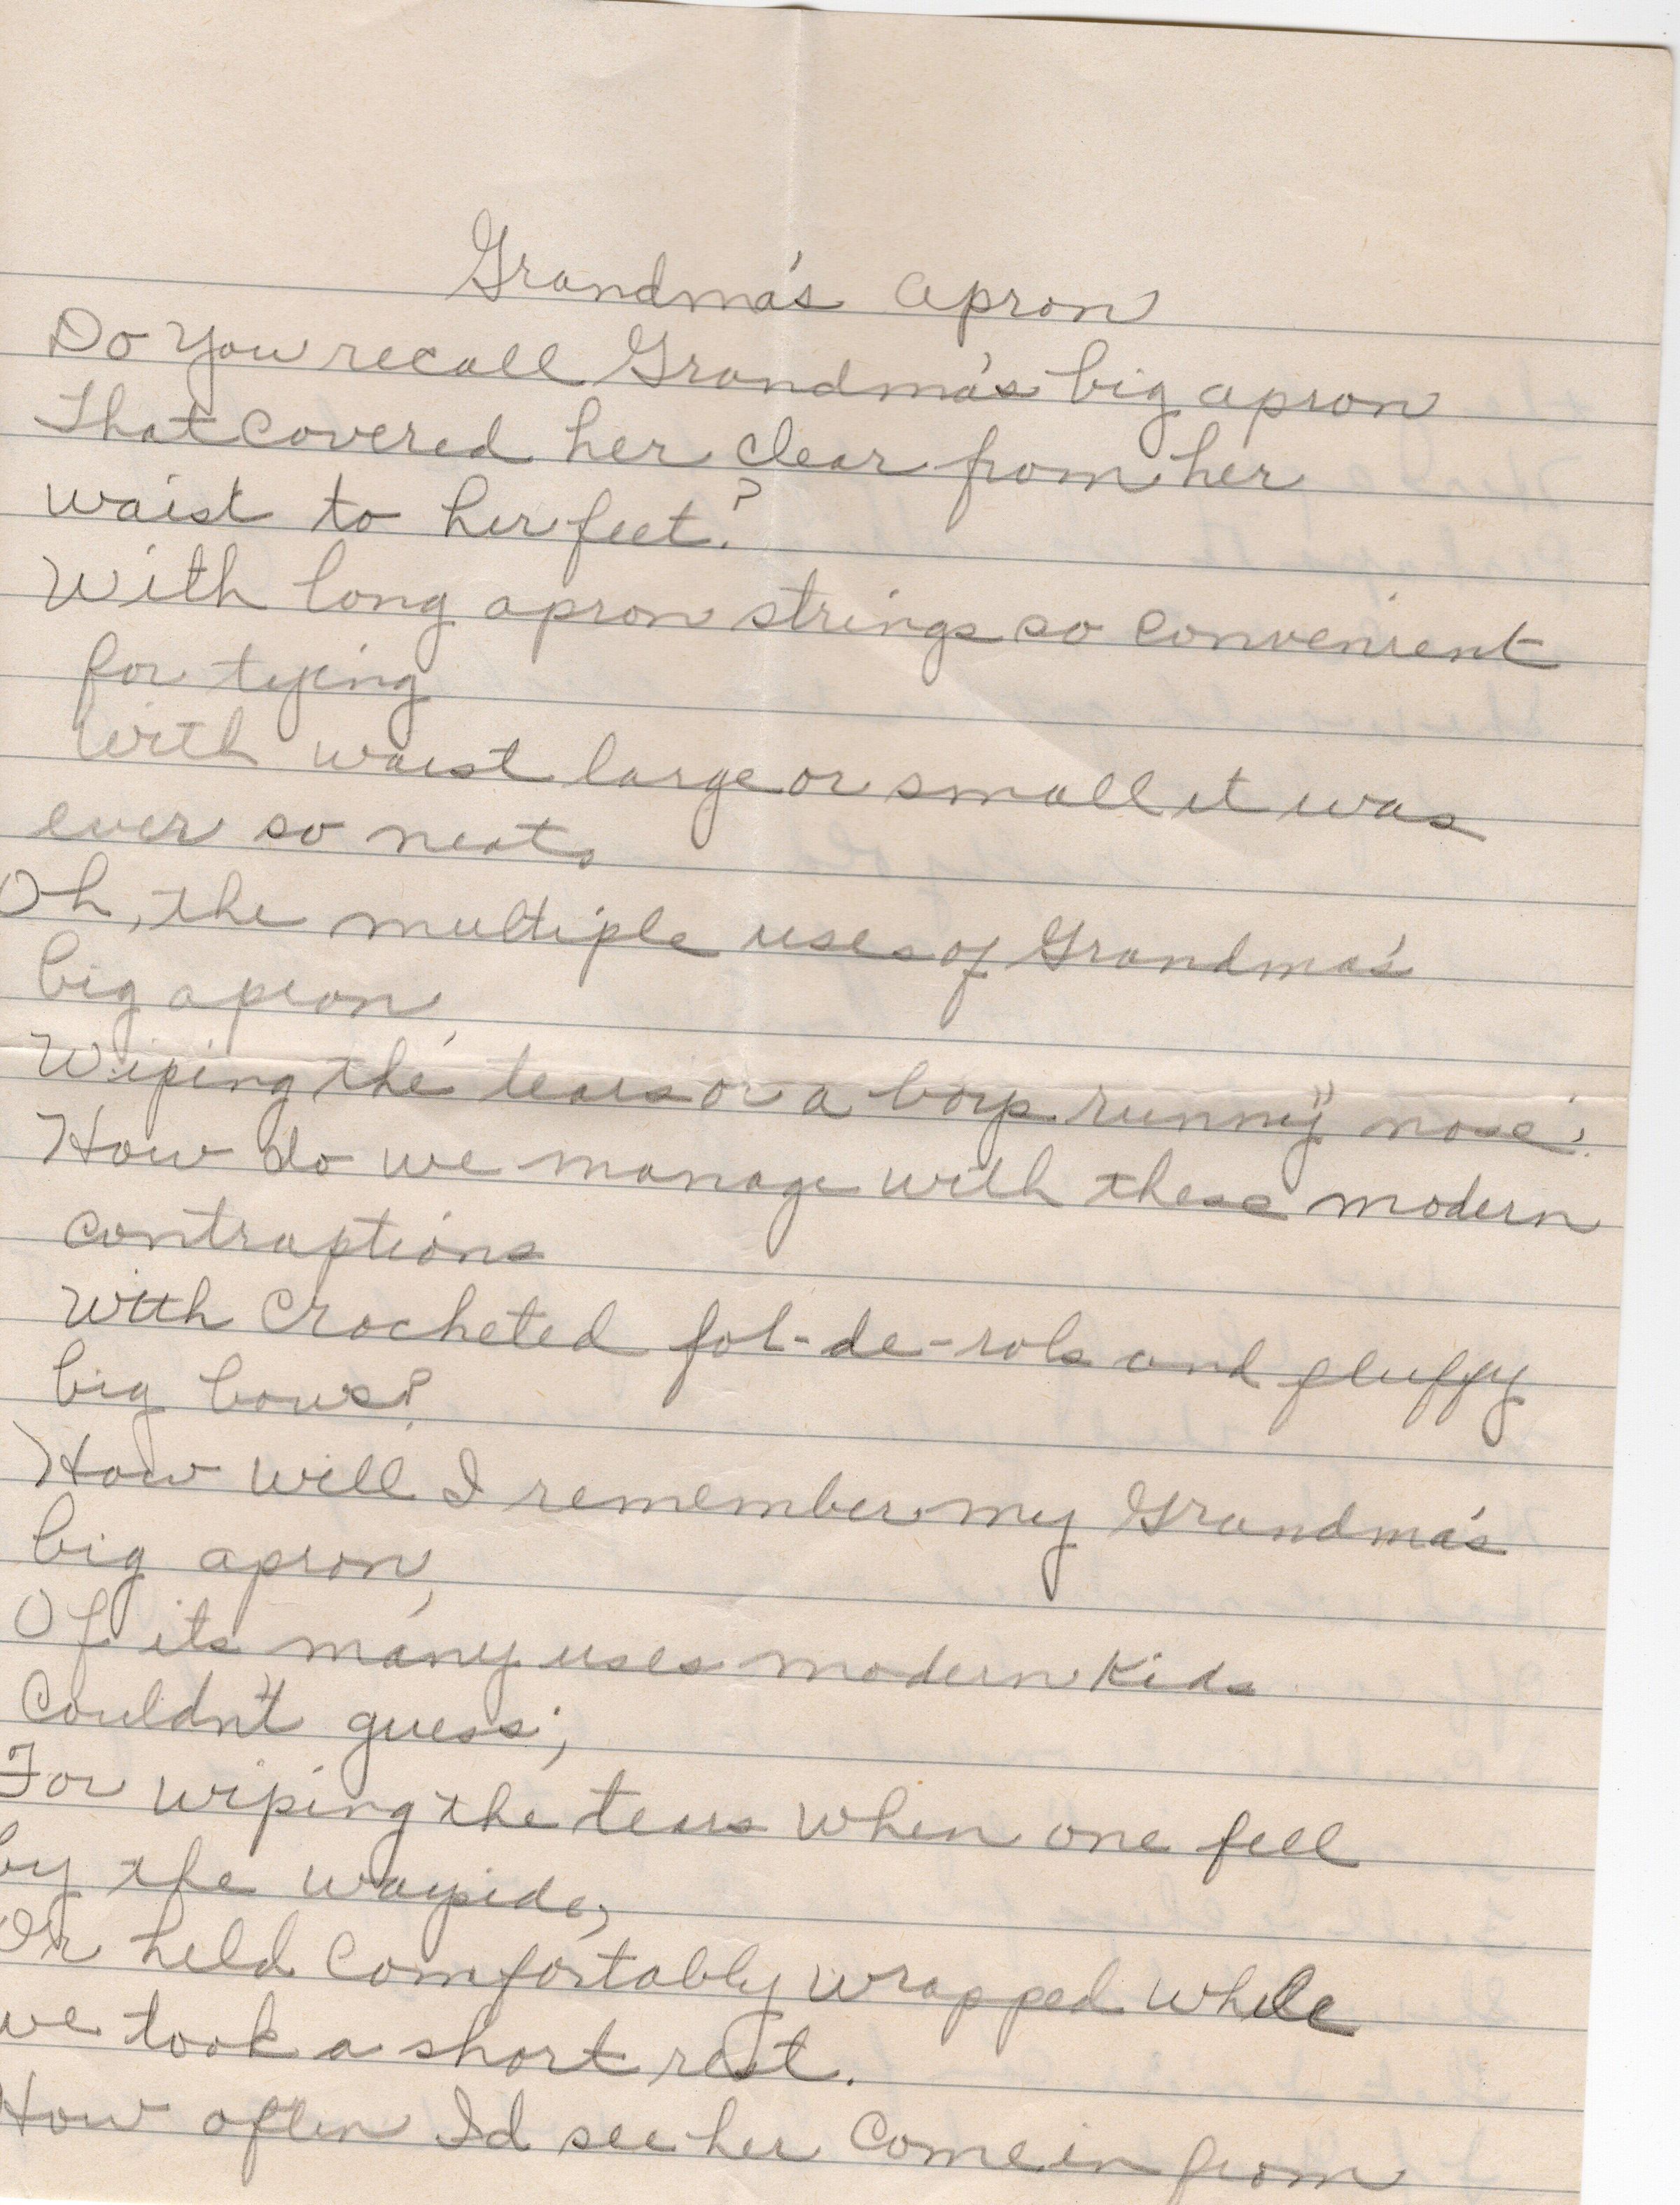 Grandma's apron
Do you recall Grandma's big apron
That covered her clear from her
waist to her feet?
With long apron strings so convenient
for tying
With waist large or small it was
ever so neat.
Oh, the multiple uses of Grandma's
big apron,
Wiping the tears or a boys "runny" nose.
How do we manage with these modern
contraptions
With crocheted fol-de-rols and fluffy
big bows?
How will I remember my Grandma's
big apron,
Of its many uses modern kids
couldn't guess;
For wiping the tears when one fell
by the wayside,
Or held comfortably wrapped while
we took a short rest.
How often I'd see her come in from